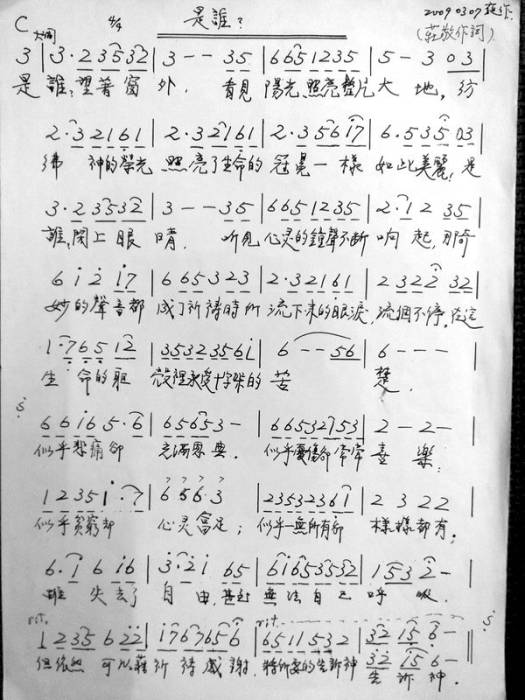 是誰？
2009 0307 
C 大調 4/4
(莊敬作詞)
3 | 3·2 3532 | 3 - - 35 | 6651235 | 5 - 3 03
是誰，望著窗外．看見陽光照亮整片大地，彷
2·32161 | 2·32161 | 2·35617 | 6·535 03
彿神的榮光照亮了生命的冠冕一樣如此美麗，是
3·23532 | 3 - - 35 | 6651235 | 2·12 35
誰，閉上眼睛．听見心灵的鐘聲不斷响起，那奇
6 i 2 i7 | 665323 | 2·32161 | 2322 32
妙的聲音都成了祈禱時所流下來的眼淚，流個不停，從這
1·765 12 | 35323561 | 6 - - 56 | 6 - - -
生命的軀殼裡承受十字架的苦楚．
6 6 i6 5·6 | 65653 - | 66532753 | 2 - 2 -
似乎悲痛卻充滿恩典．似乎憂傷卻常常喜樂；
1 2351·7 | 656·3 | 23532361 | 2 3 22
似乎貧窮却心灵富足；似乎一無所有却樣樣都有．
6·i 6 i6 | 3·2i 65 | 6i653532 | 1532 -
雖失去了自由，甚起無法自己呼吸．
rit. rit.
1 235 622 | 1767656 | 6511532 | 32 15 6 -
但依然可以藉祈禱感謝，將所要的告訴神
32 15 6 -
告訴神．